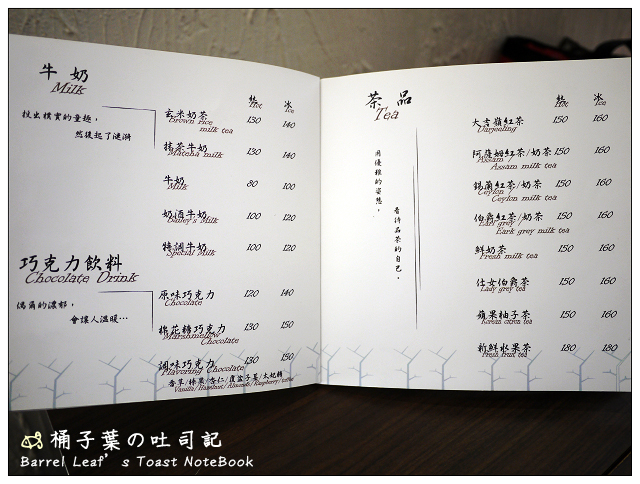 牛 奶
Milk
找出樸實的童趣,
然後起了漣漪
熱 冰
Hot Ice
玄米奶茶 130 140
Brown rice
milk tea
抹茶牛奶 130 140
Matcha milk
牛奶 80 100
Milk
奶酒牛奶 100 120
Bailey's Milk
特調牛奶 100 120
Special Milk
巧克力飲料
Chocolate Drink
偶爾的濃郁,
會讓人溫暖…
原味巧克力 120 140
Chocolate
棉花糖巧克力 130 150
Marshmellow
Chocolate
調味巧克力 130 150
Flavoring Chocolate
香草/榛果/杏仁/覆盆子莓/太妃糖
Vanilla/Hazelnut/Almonds/Raspberry/toffee
茶 品
Tea
用優雅的姿態,
看待品茶的自己.
熱 冰
Hot Ice
大吉嶺紅茶 150 160
Darjeeling
阿薩姆紅茶/奶茶 150 160
Assam
Assam milk tea
錫蘭紅茶/奶茶 150 160
Ceylon
Ceylon milk tea
伯爵紅茶/奶茶 150 160
Earl grey
Eark grey milk tea
鮮奶茶 150 160
Fresh milk tea
仕女伯爵茶 150 160
Lady grey tea
蘋果柚子茶 150 160
Korean citron tea
新鮮水果茶 180 180
Fresh fruit tea
桶子葉の吐司記
Barrel Leaf's Toast NoteBook